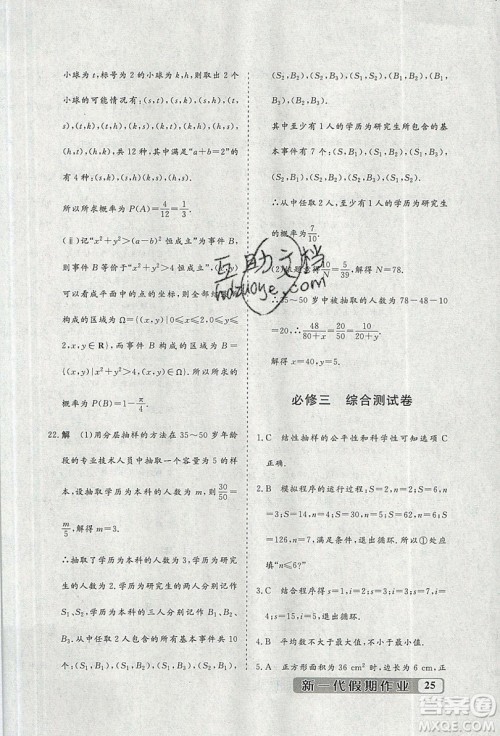 小球为t,标号为2的小球为k,h,则取出2个
小球的可能情况有:(s,t),(s,k),(s,h),
(t,s),(t,k),(t,h),(k,s),(k,t),(k,h),
(h,s),(h,t),(h,k),共12种,其中满足“a+b=2”的
有4种:(s,k),(s,h),(k,s),(h,s).
所以所求概率为P(A)=4/12=1/3.
(ⅱ)“x²+y²>(a-b)²恒成立”为事件B,
则事件B等价于“x²+y²>4恒成立”,(x,y)
可以看成平面中的点的坐标,则全部结果所
构成的区域为Ω={(x,y)|0≤x≤2,0≤y≤
2,x,y∈R},而事件B构成的区域为B=
{(x,y)|x²+y²>4,(x,y)∈Ω}.
所以所求的概率为P(B)=1-π/4.
22.解 (1)用分层抽样的方法在35~50岁年龄
段的专业技术人员中抽取一个容量为5的样
本,设抽取学历为本科的人数为m,∴30/50=
m/5,解得m=3.
∴抽取了学历为本科的人数为3人,学历为研
究生的人数为2人,学历为研究生的两人分别记作
S₁、S₂,学历为本科的三人分别记作B₁、B₂、
B₃.从中任取2人的所有基本事件共有十个:
(S₁,B₁),(S₁,B₂),(S₁,B₃),(S₂,B₁),
(S₂,B₂),(S₂,B₃),(S₁,S₂),(B₁,B₂),
(B₂,B₃),(B₁,B₃).
其中,至少有1人的学历为研究生所包含的基
本事件有7个:(S₁,B₁),(S₁,B₂),
(S₁,B₃),(S₂,B₁),(S₂,B₂),(S₂,B₃),
(S₁,S₂).
∴从中任取2人,至少有1人的学历为研究生
的概率为7/10.
(2)依题意得:10/N=5/39,解得N=78.
∴35~50岁中被抽取的人数为78-48-10
=20,∴48/(80+x)=20/50=10/(20+y).
解得x=40,y=5.
必修三 综合测试卷
1. C 结性抽样的公平性和科学性可知选项
C正确.
2. B 模拟程序的运行过程:S=2,n=2;S=
6,n=3;S=14,n=4;S=30,n=5;S=62,n=6;S=
126,n=7;满足条件,退出循环,所以①处应
填“n≤6?”.
3. A 结合程序得s=1,i=3;s=3,i=5;s=
15,i=7;s=105,i=9,退出循环.
4. B 平均数不大于最大值,不小于最小值.
5. A 正方形面积为36 cm²时,边长为6 cm,正
新一代假期作业 25
互助文档
hdzuoye.com
作业精灵